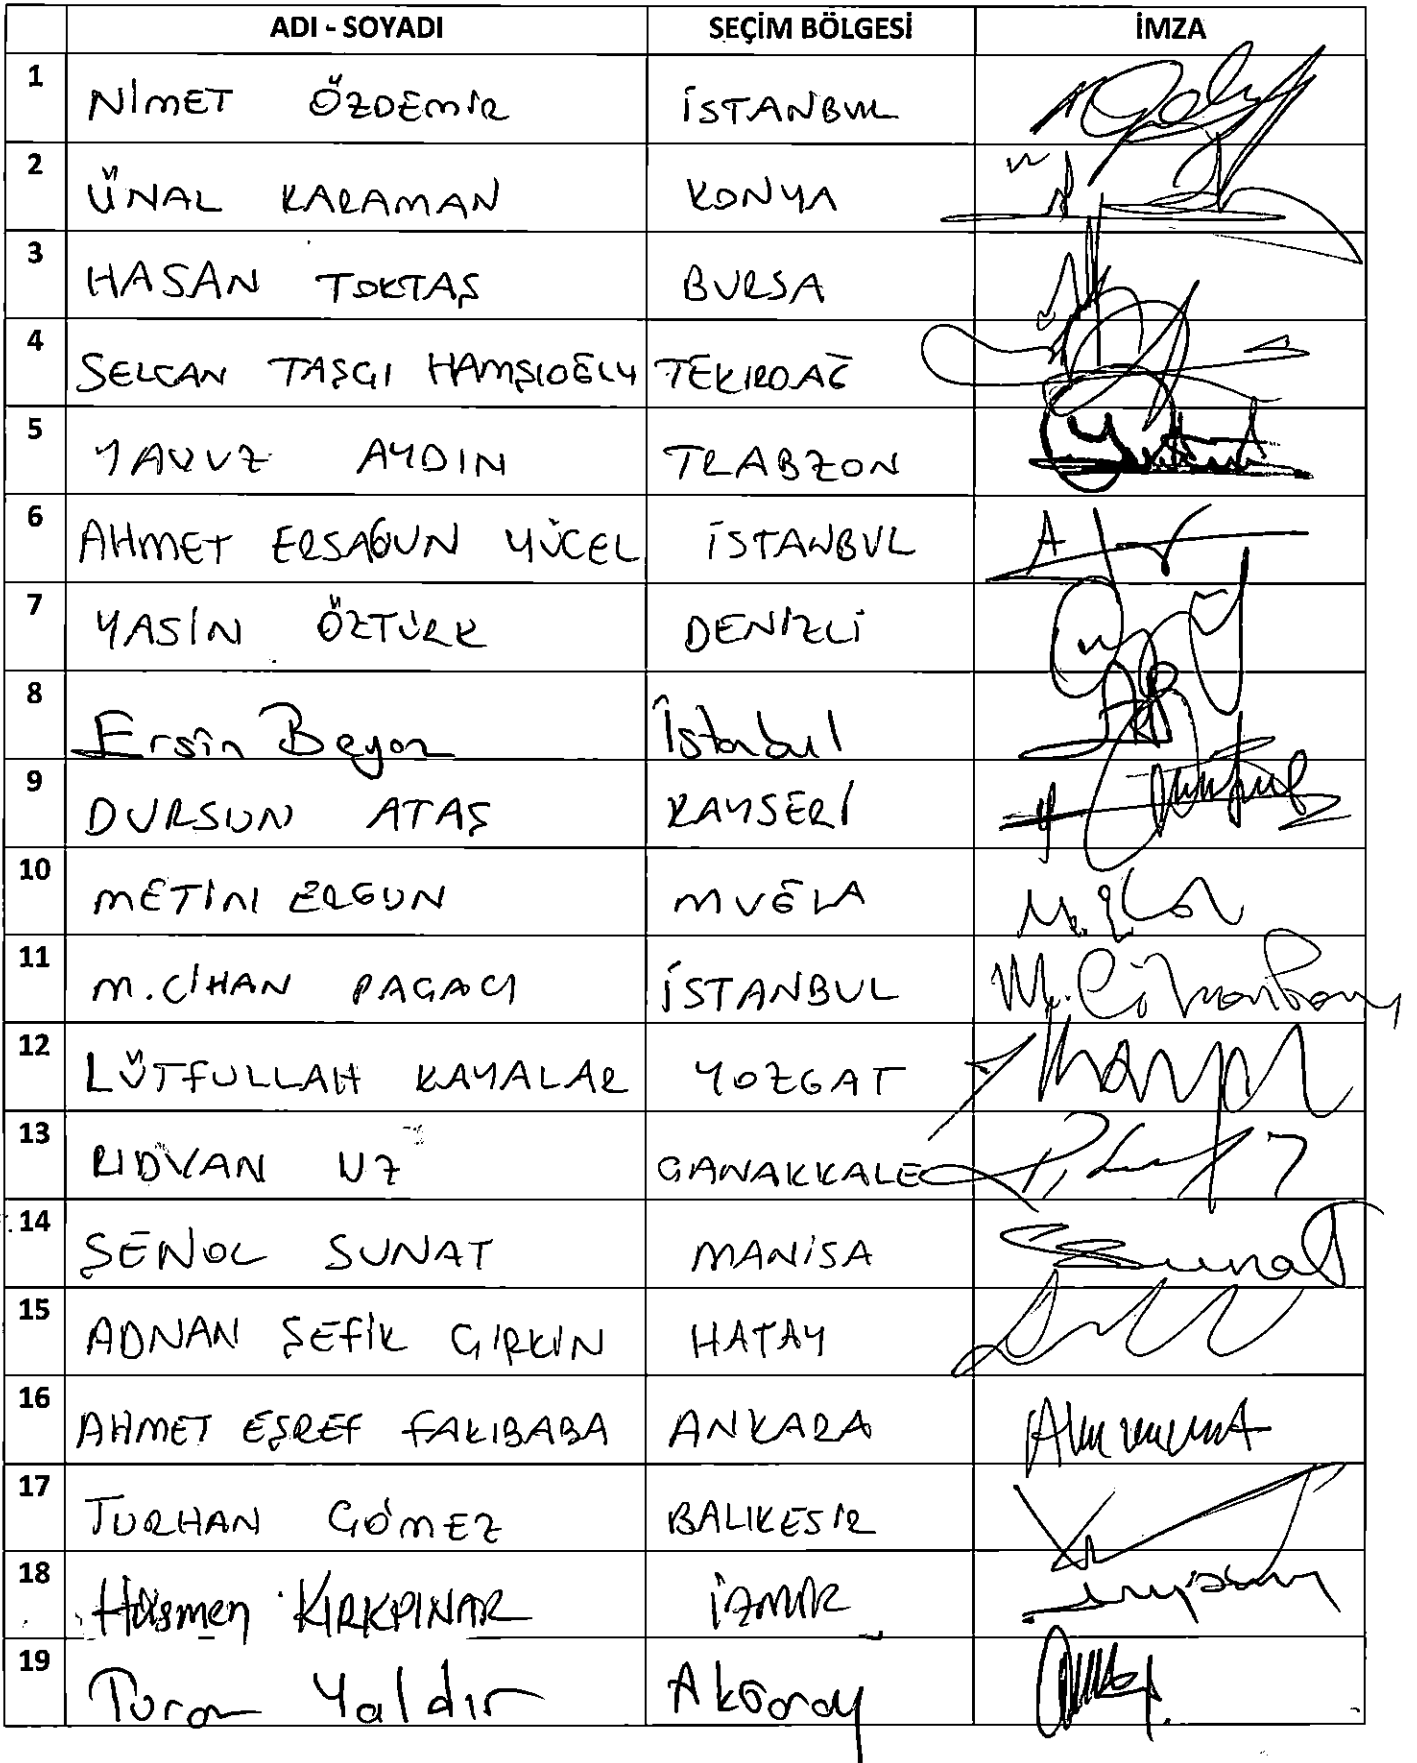 ADI - SOYADI SEÇİM BÖLGESİ İMZA
1 NİMET ÖZDEMİR İSTANBUL
2 ÜNAL KARAMAN KONYA
3 HASAN TOKTAŞ BURSA
4 SELCAN TAŞÇI HAMŞIOĞLU TEKİRDAĞ
5 YAVUZ AYDIN TRABZON
6 AHMET ERSAGUN YÜCEL İSTANBUL
7 YASİN ÖZTÜRK DENİZLİ
8 Ersin Beyaz İstanbul
9 DURSUN ATAŞ KAYSERİ
10 METİN ERGUN MUĞLA
11 M. CİHAN PAÇACI İSTANBUL
12 LÜTFULLAH KAYALAR YOZGAT
13 RIDVAN UZ ÇANAKKALE
14 ŞENOL SUNAT MANİSA
15 ADNAN ŞEFİK ÇIRKIN HATAY
16 AHMET EŞREF FAKIBABA ANKARA
17 TURHAN ÇÖMEZ BALIKESİR
18 Hüsmen KIRKPINAR İZMİR
19 Turan Yaldır Aksaray